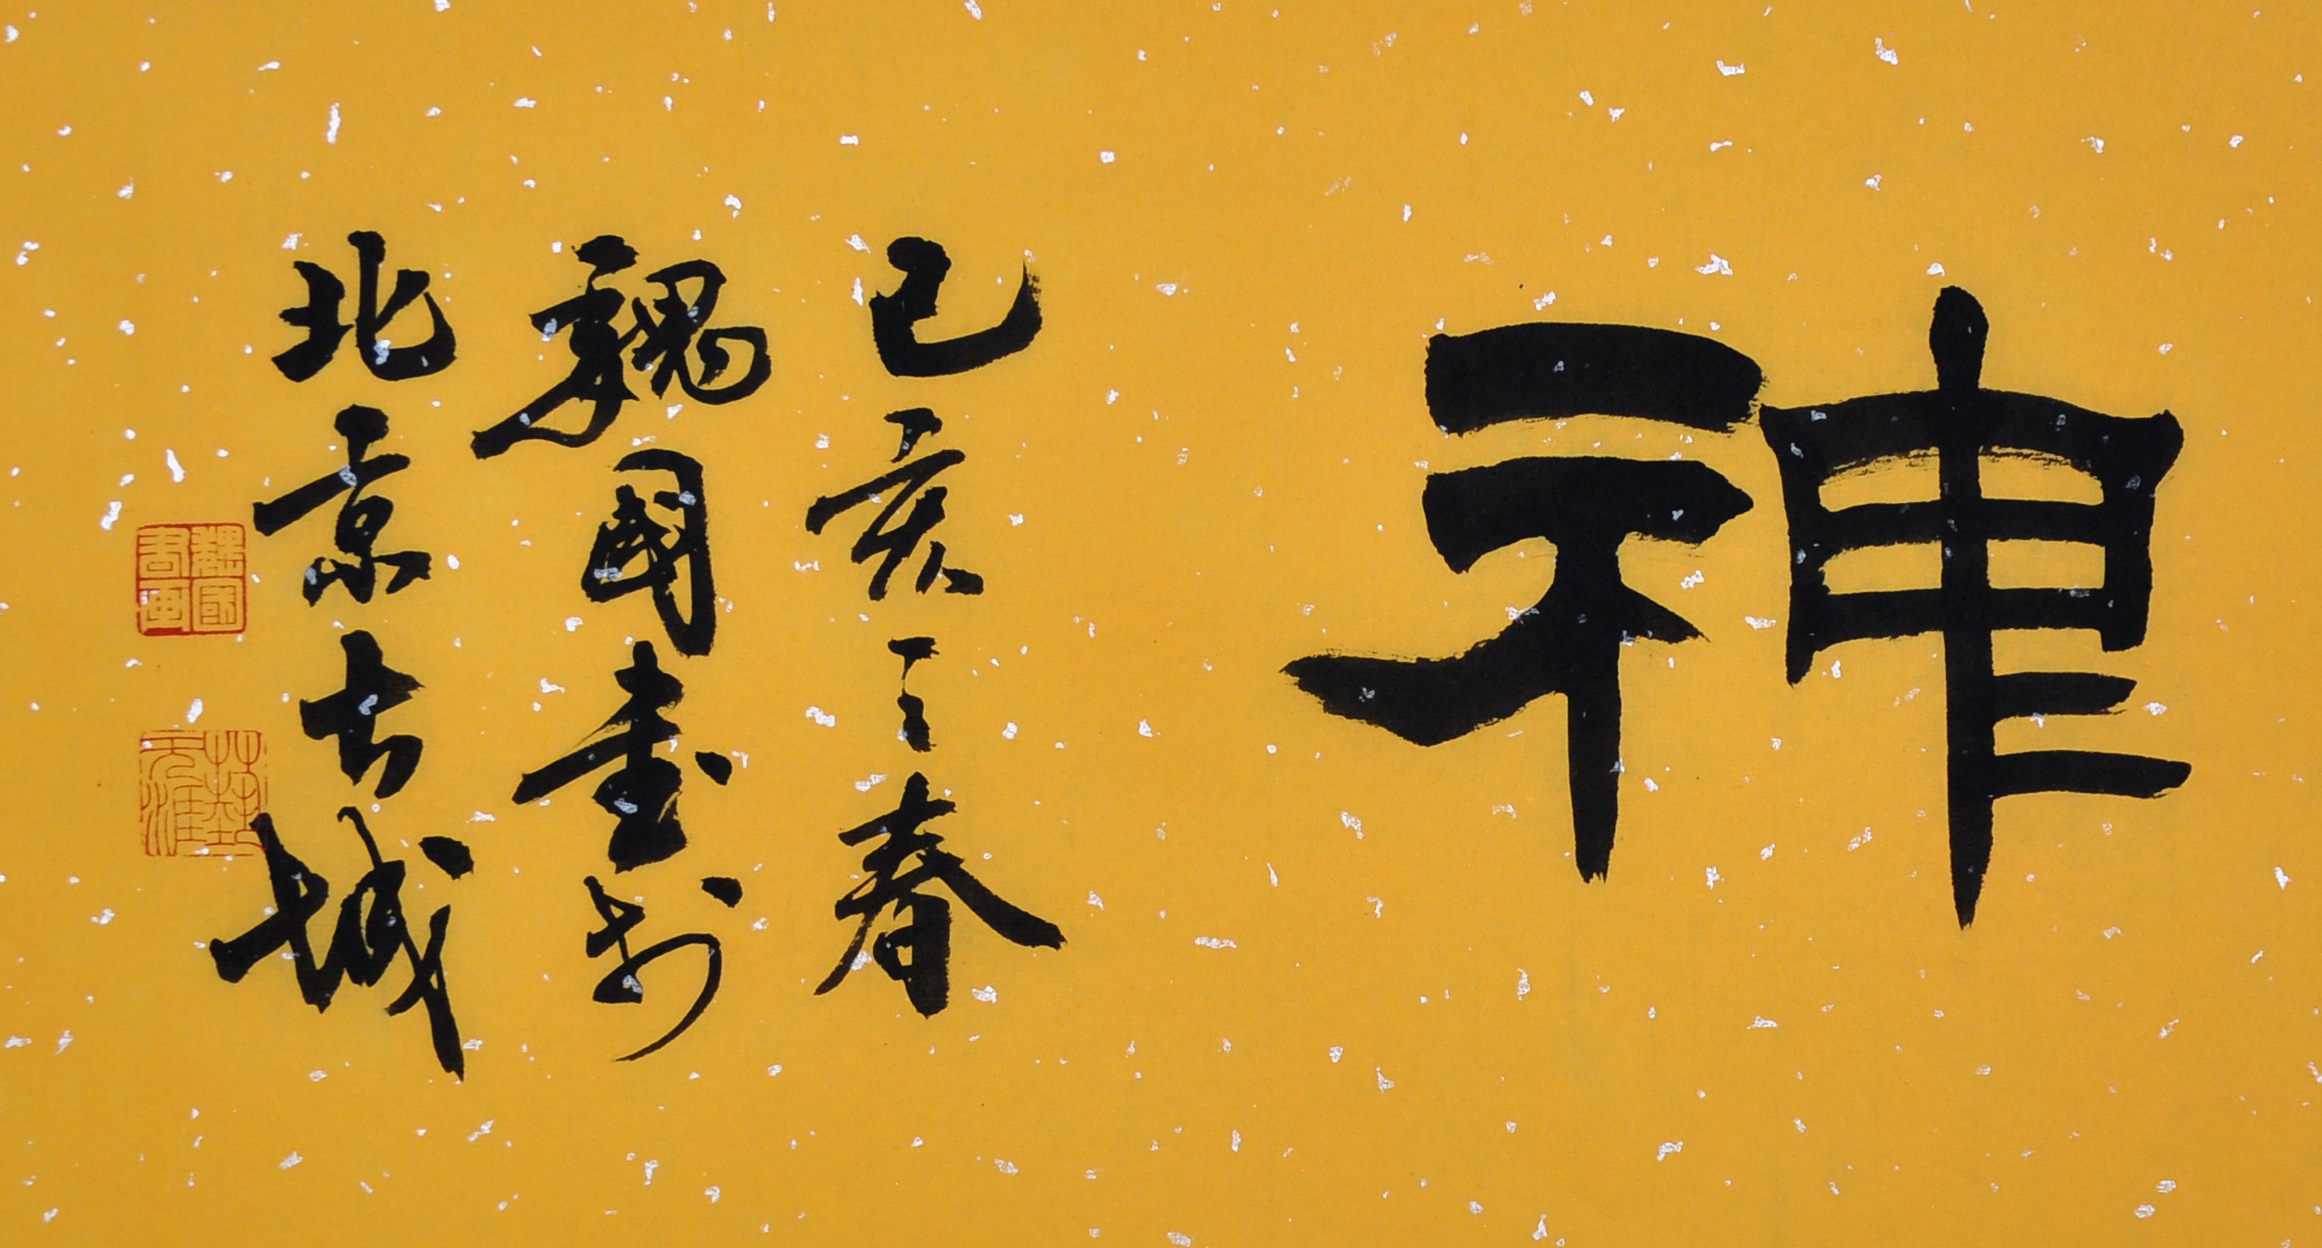 神
己亥之春
魏國書於
北京古城
魏國書画
藝无涯